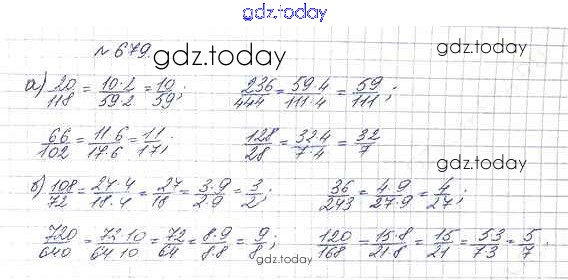 gdz.today
№ 679.
gdz.today
gdz.today
а) 20/118 = 10·2/59·2 = 10/59; 236/444 = 59·4/111·4 = 59/111;
66/102 = 11·6/17·6 = 11/17; 128/28 = 32·4/7·4 = 32/7
gdz.today
б) 108/72 = 27·4/18·4 = 27/18 = 3·9/2·9 = 3/2; 36/243 = 4·9/27·9 = 4/27;
720/640 = 72·10/64·10 = 72/64 = 8·9/8·8 = 9/8; 120/168 = 15·8/21·8 = 15/21 = 53/73 = 5/7.
gdz.today